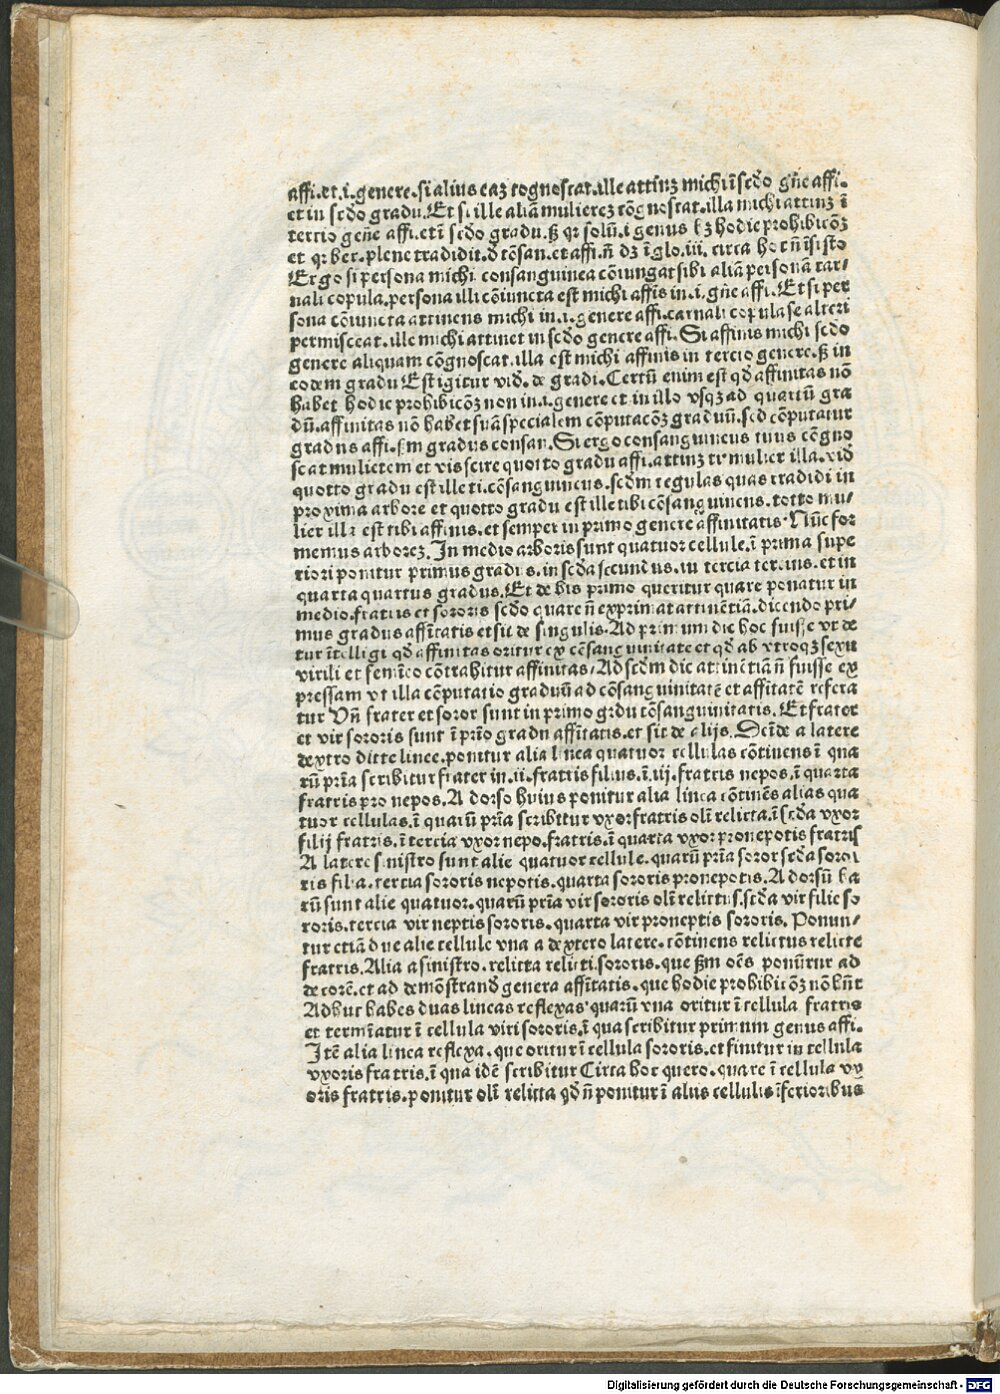 affi.et.i.genere.si alius eaꝫ cognoscat.ille attinꝫ michi ĩ scđo gñe affi.
et in scđo gradu.Et si ille aliã muliereꝫ cõgnoscat.illa michi attinꝫ ĩ
tercio gñe affi.et ĩ scđo gradu.ꝭ qꝛ solũ.i genus hꝫ hodie prohibicõꝫ
et qꝛ hec.plene tradidit.đ cõsan.et affi.ñ dꝫ ĩ glo.iii. circa hoc ñ ĩsisto
Ergo si persona michi consanguinea cõiungat sibi aliã personã car/
nali copula.persona illi cõiuncta est michi affis in.i.gñe affi.Et si per
sona cõiuncta attinens michi in.i.genere affi.carnali copula se alteri
permisceat.ille michi attinet in scđo genere affi.Si affinis michi scđo
genere aliquam cõgnoscat.illa est michi affinis in tercio genere.ꝭ in
eodem gradu Est igitur vid. de gradi.Certũ enim est qđ affinitas nõ
habet hodie prohibicõꝫ non in.i.genere et in illo vsqꝫ ad quartũ gra
dũ.affinitas nõ habet suã specialem cõputacõꝫ graduũ.sed cõputatur
gradus affi.ẜm gradus consan.Si ergo consanguineus tuus cõgno
scat mulierem et vis scire quotto gradu affi.attinꝫ ti mulier illa.vid
quotto gradu est ille ti.cõsanguineus.scđm regulas quas tradidi in
proxima arbore et quotto gradu est ille tibi cõsanguineus.totto mu/
lier illa est tibi affinis.et semper in primo genere affinitatis Nũc for
memus arboreꝫ.In medio arboris sunt quatuor cellule.ĩ prima supe
riori ponitur primus gradus.in scđa secundus.in tercia tercius.et in
quarta quartus gradus.Et de his primo queritur quare ponatur in
medio.fratris et sororis scđo quare ñ exprimat attinẽtiã.dicendo pri/
mus gradus affĩtatis et sic de singulis.Ad primum dic hoc fuisse vt de
tur ĩtelligi qđ affinitas oritur ex cõsanguinitate et qđ ab vtroqꝫ sexu
virili et femĩeo cõtrahitur affinitas/Ad scđm dic attinẽtiã ñ fuisse ex
pressam vt illa cõputatio graduũ ad cõsanguinitatẽ et affitatẽ refera
tur Vñ frater et soror sunt in primo grđu cõsanguinitatis.Et frater
et vir sororis sunt ĩ prĩo gradu affĩtatis.et sic de alijs.Deĩde a latere
dextro dicte linee.ponitur alia linea quatuor cellulas cõtinens ĩ qua
rũ prĩa scribitur frater in.ii.fratris filius.ĩ.iij.fratris nepos.ĩ quarta
fratris pro nepos.A dorso huius ponitur alia linea cõtinẽs alias qua
tuor cellulas.ĩ quarũ prĩa scribitur vxor fratris olĩ relicta.ĩ scđa vxor
filij fratris.ĩ tercia vxor nepo.fratris.ĩ quarta vxor pronepotis fratris
A latere sinistro sunt alie quatuor cellule.quarũ prĩa soror scđa soro
ris filia.tercia sororis nepotis.quarta sororis pronepotis.A dorsũ ha
rũ sunt alie quatuor.quarũ prĩa vir sororis olĩ relictus.scđa vir filie so
roris.tercia vir neptis sororis.quarta vir proneptis sororis. Ponun/
tur etiã due alie cellule vna a dextero latere.cõtinens relictus relicte
fratris.Alia a sinistro.relicta relicti.sororis.que ẜm oẽs ponũrur ad
decorẽ.et ad demõstranđ genera affĩtatis.que hodie prohibicõꝫ nõ hñt
Adhuc habes duas lineas reflexas quarũ vna oritur ĩ cellula fratris
et termĩatur ĩ cellula viri sororis.ĩ qua scribitur primum genus affi.
Itẽ alia linea reflexa.que oritur ĩ cellula sororis.et finitur in cellula
vxoris fratris.ĩ qua idẽ scribitur Circa hoc quero.quare ĩ cellula vx
oris fratris.ponitur olĩ relicta qđ ñ ponitur ĩ aliis cellulis ĩferioribus
Digitalisierung gefördert durch die Deutsche Forschungsgemeinschaft - DFG